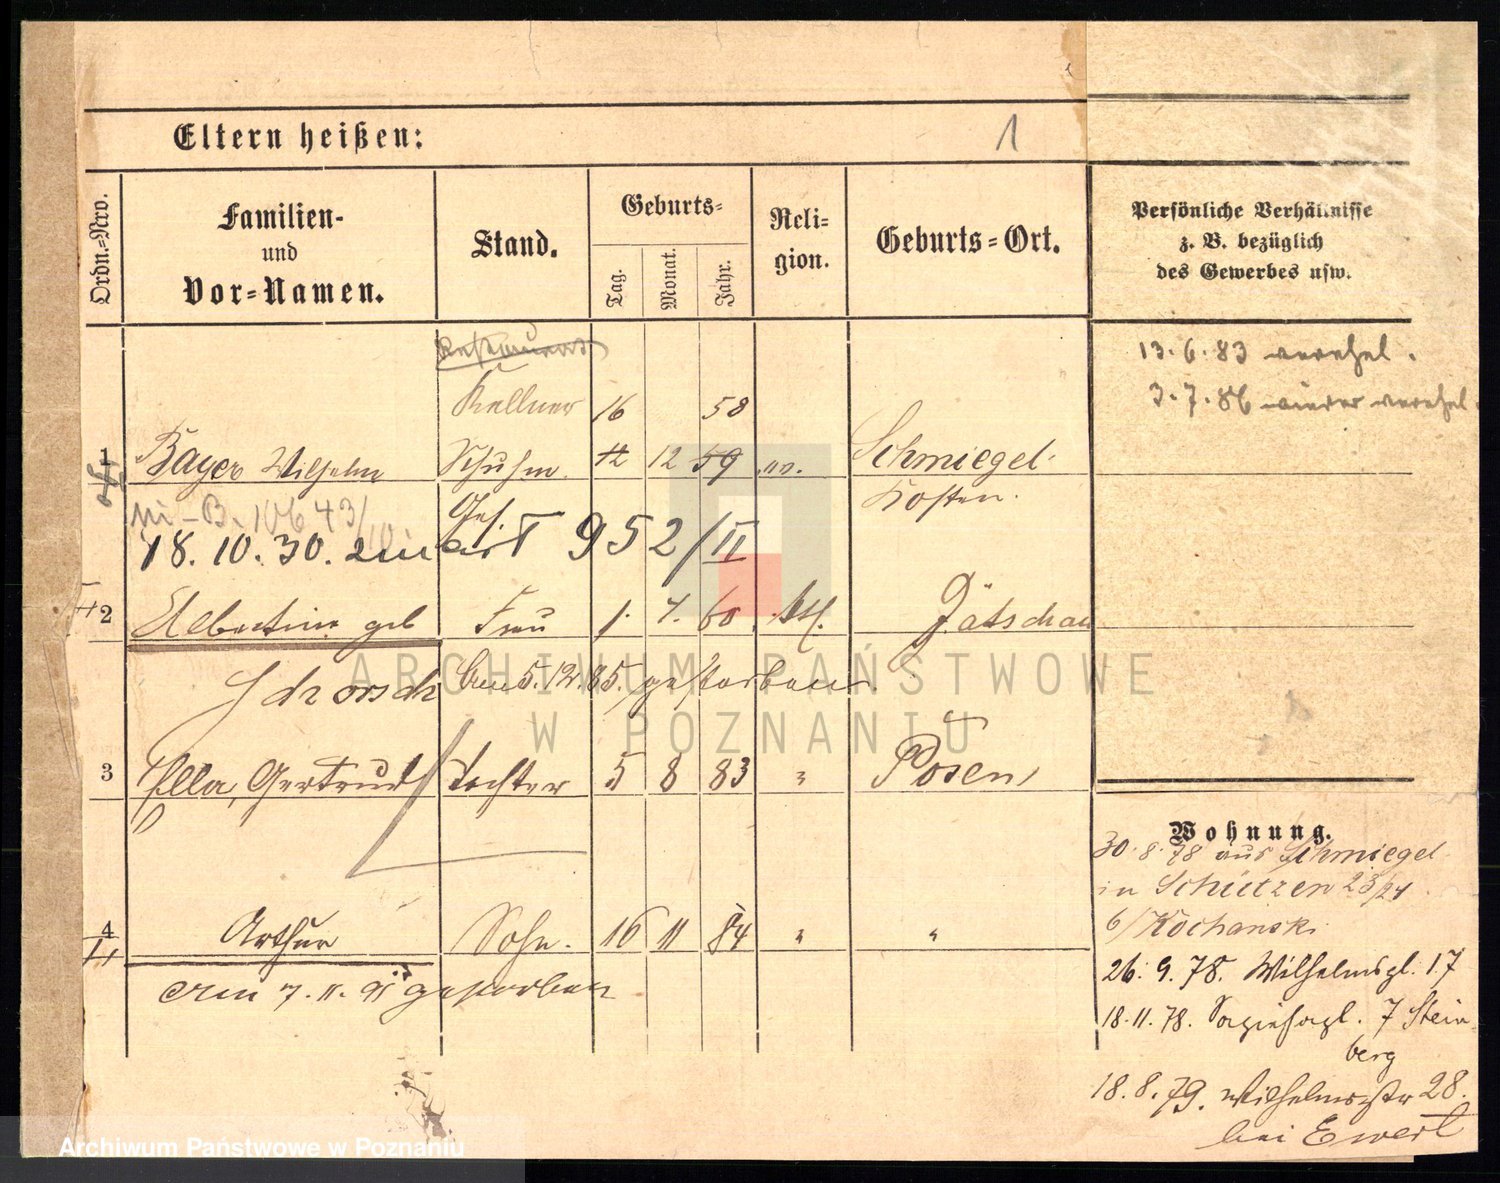 Eltern heißen:
1
Ordn.=Nro.
Familien-
und
Vor=Namen.
Stand.
Geburts=
Tag.
Monat.
Jahr.
Reli=
gion.
Geburts=Ort.
Persönliche Verhältnisse
z. B. bezüglich
des Gewerbes usw.
Restaurat
13.6.83 verehel.
3.7.86 wieder verehel.
Kellner 16 58
1 Bayer Wilhelm Schuhm. 12 12 59 ev. Schmiegel
Kosten.
Ges.
18.10.30. 952/II
2 Albertine geb Frau 1. 7. 60 ktl. Jätschau
Schorsch den 5.12.85. gestorben.
3 Ella, Gertrud Tochter 5 8 83 " Posen
4 Arthur Sohn. 16 11 84 " "
am 7.11.91 gestorben
Wohnung.
30.8.78 aus Schmiegel
in Schützen 23/24
b/Kochanski
26.9.78. Wilhelmspl. 17
18.11.78. Sapiehapl. 7 Stein-
berg
18.8.79. Wilhelmsstr 28.
bei Ewert
ARCHIWUM PAŃSTWOWE
W POZNANIU
Archiwum Państwowe w Poznaniu